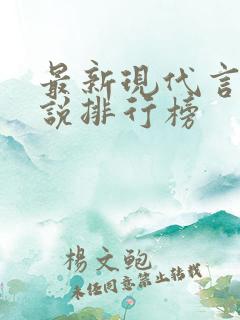 最新現代言
說排行榜
楊文鲍
未经同意禁止转载